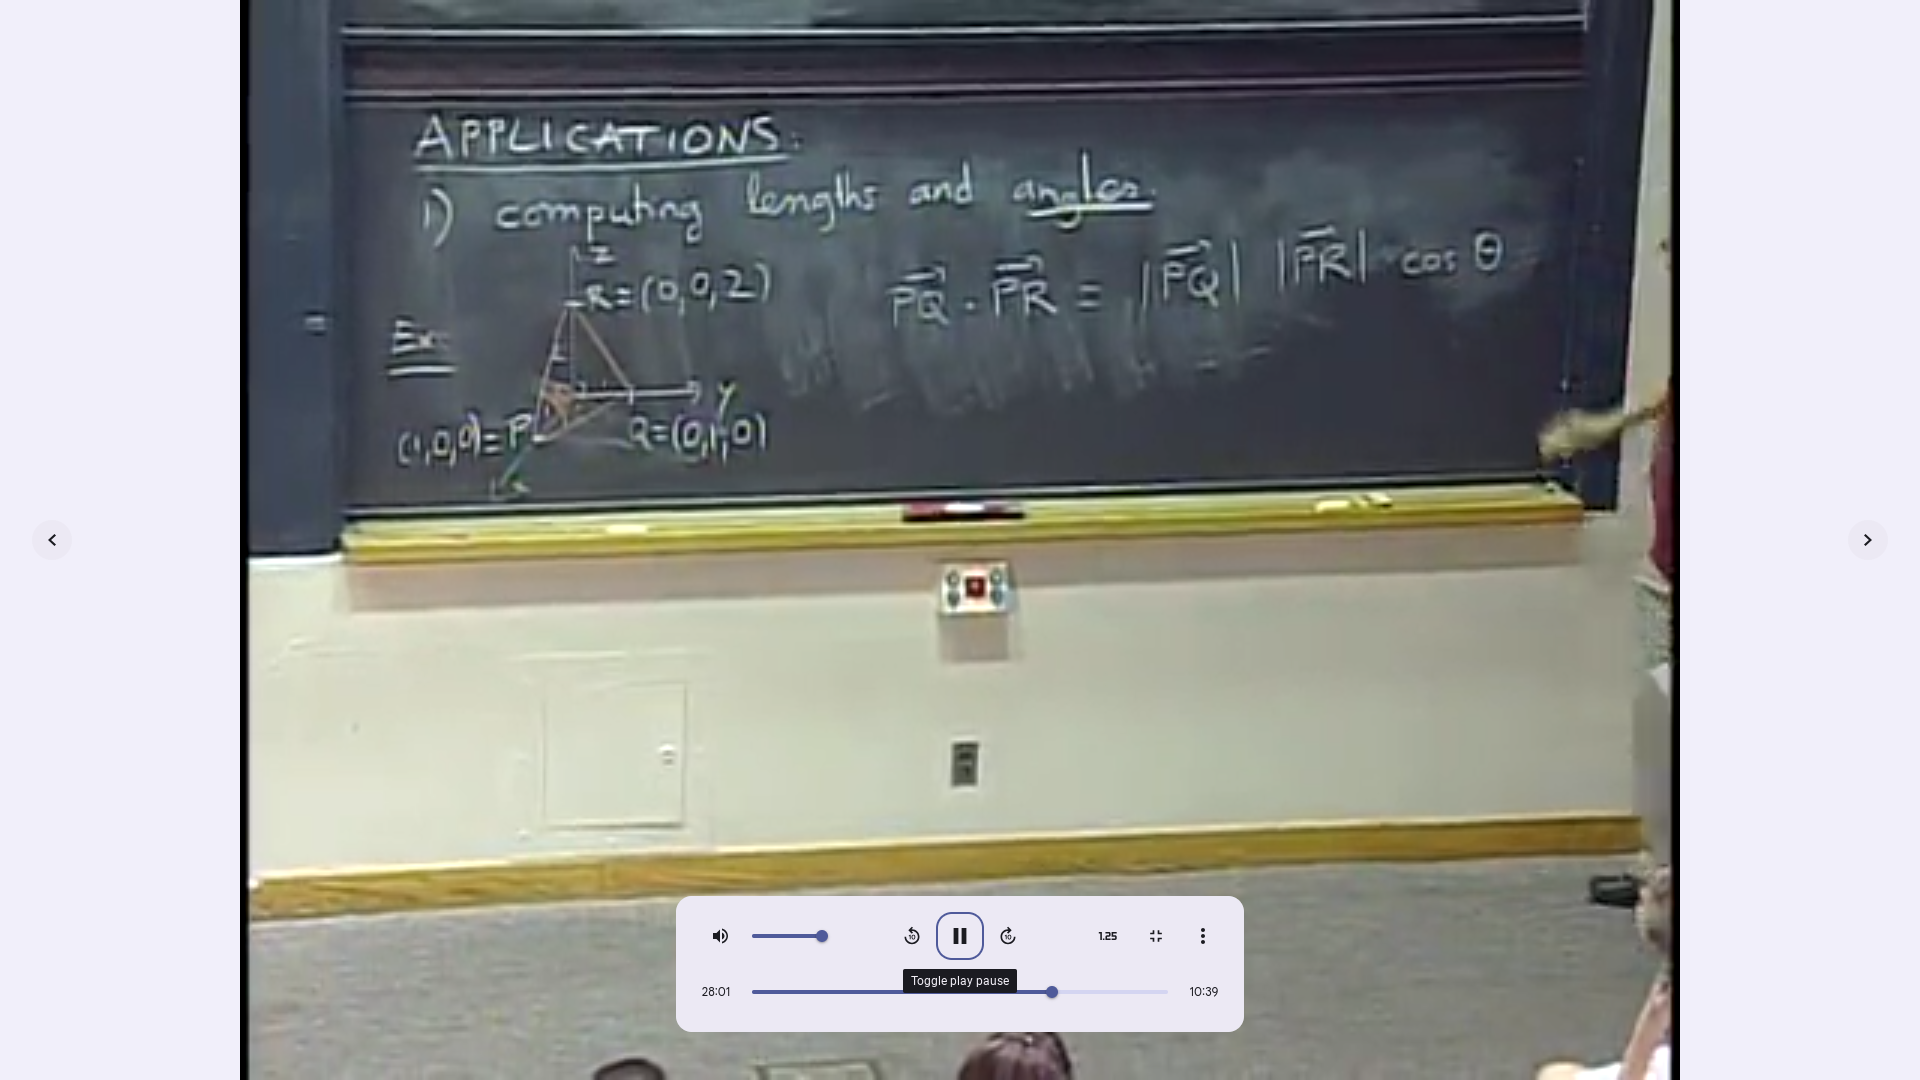 APPLICATIONS:
1) computing lengths and angles.
z
R = (0,0,2)
PQ · PR = |PQ| |PR| cos θ
Ex:
y
(1,0,0) = P
Q = (0,1,0)
x
1.25
Toggle play pause
28:01
10:39